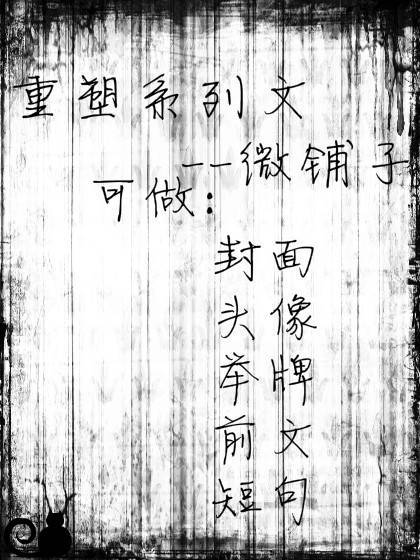 重塑系列文
——微铺子
可做：
封面
头像
举牌
前文
短句